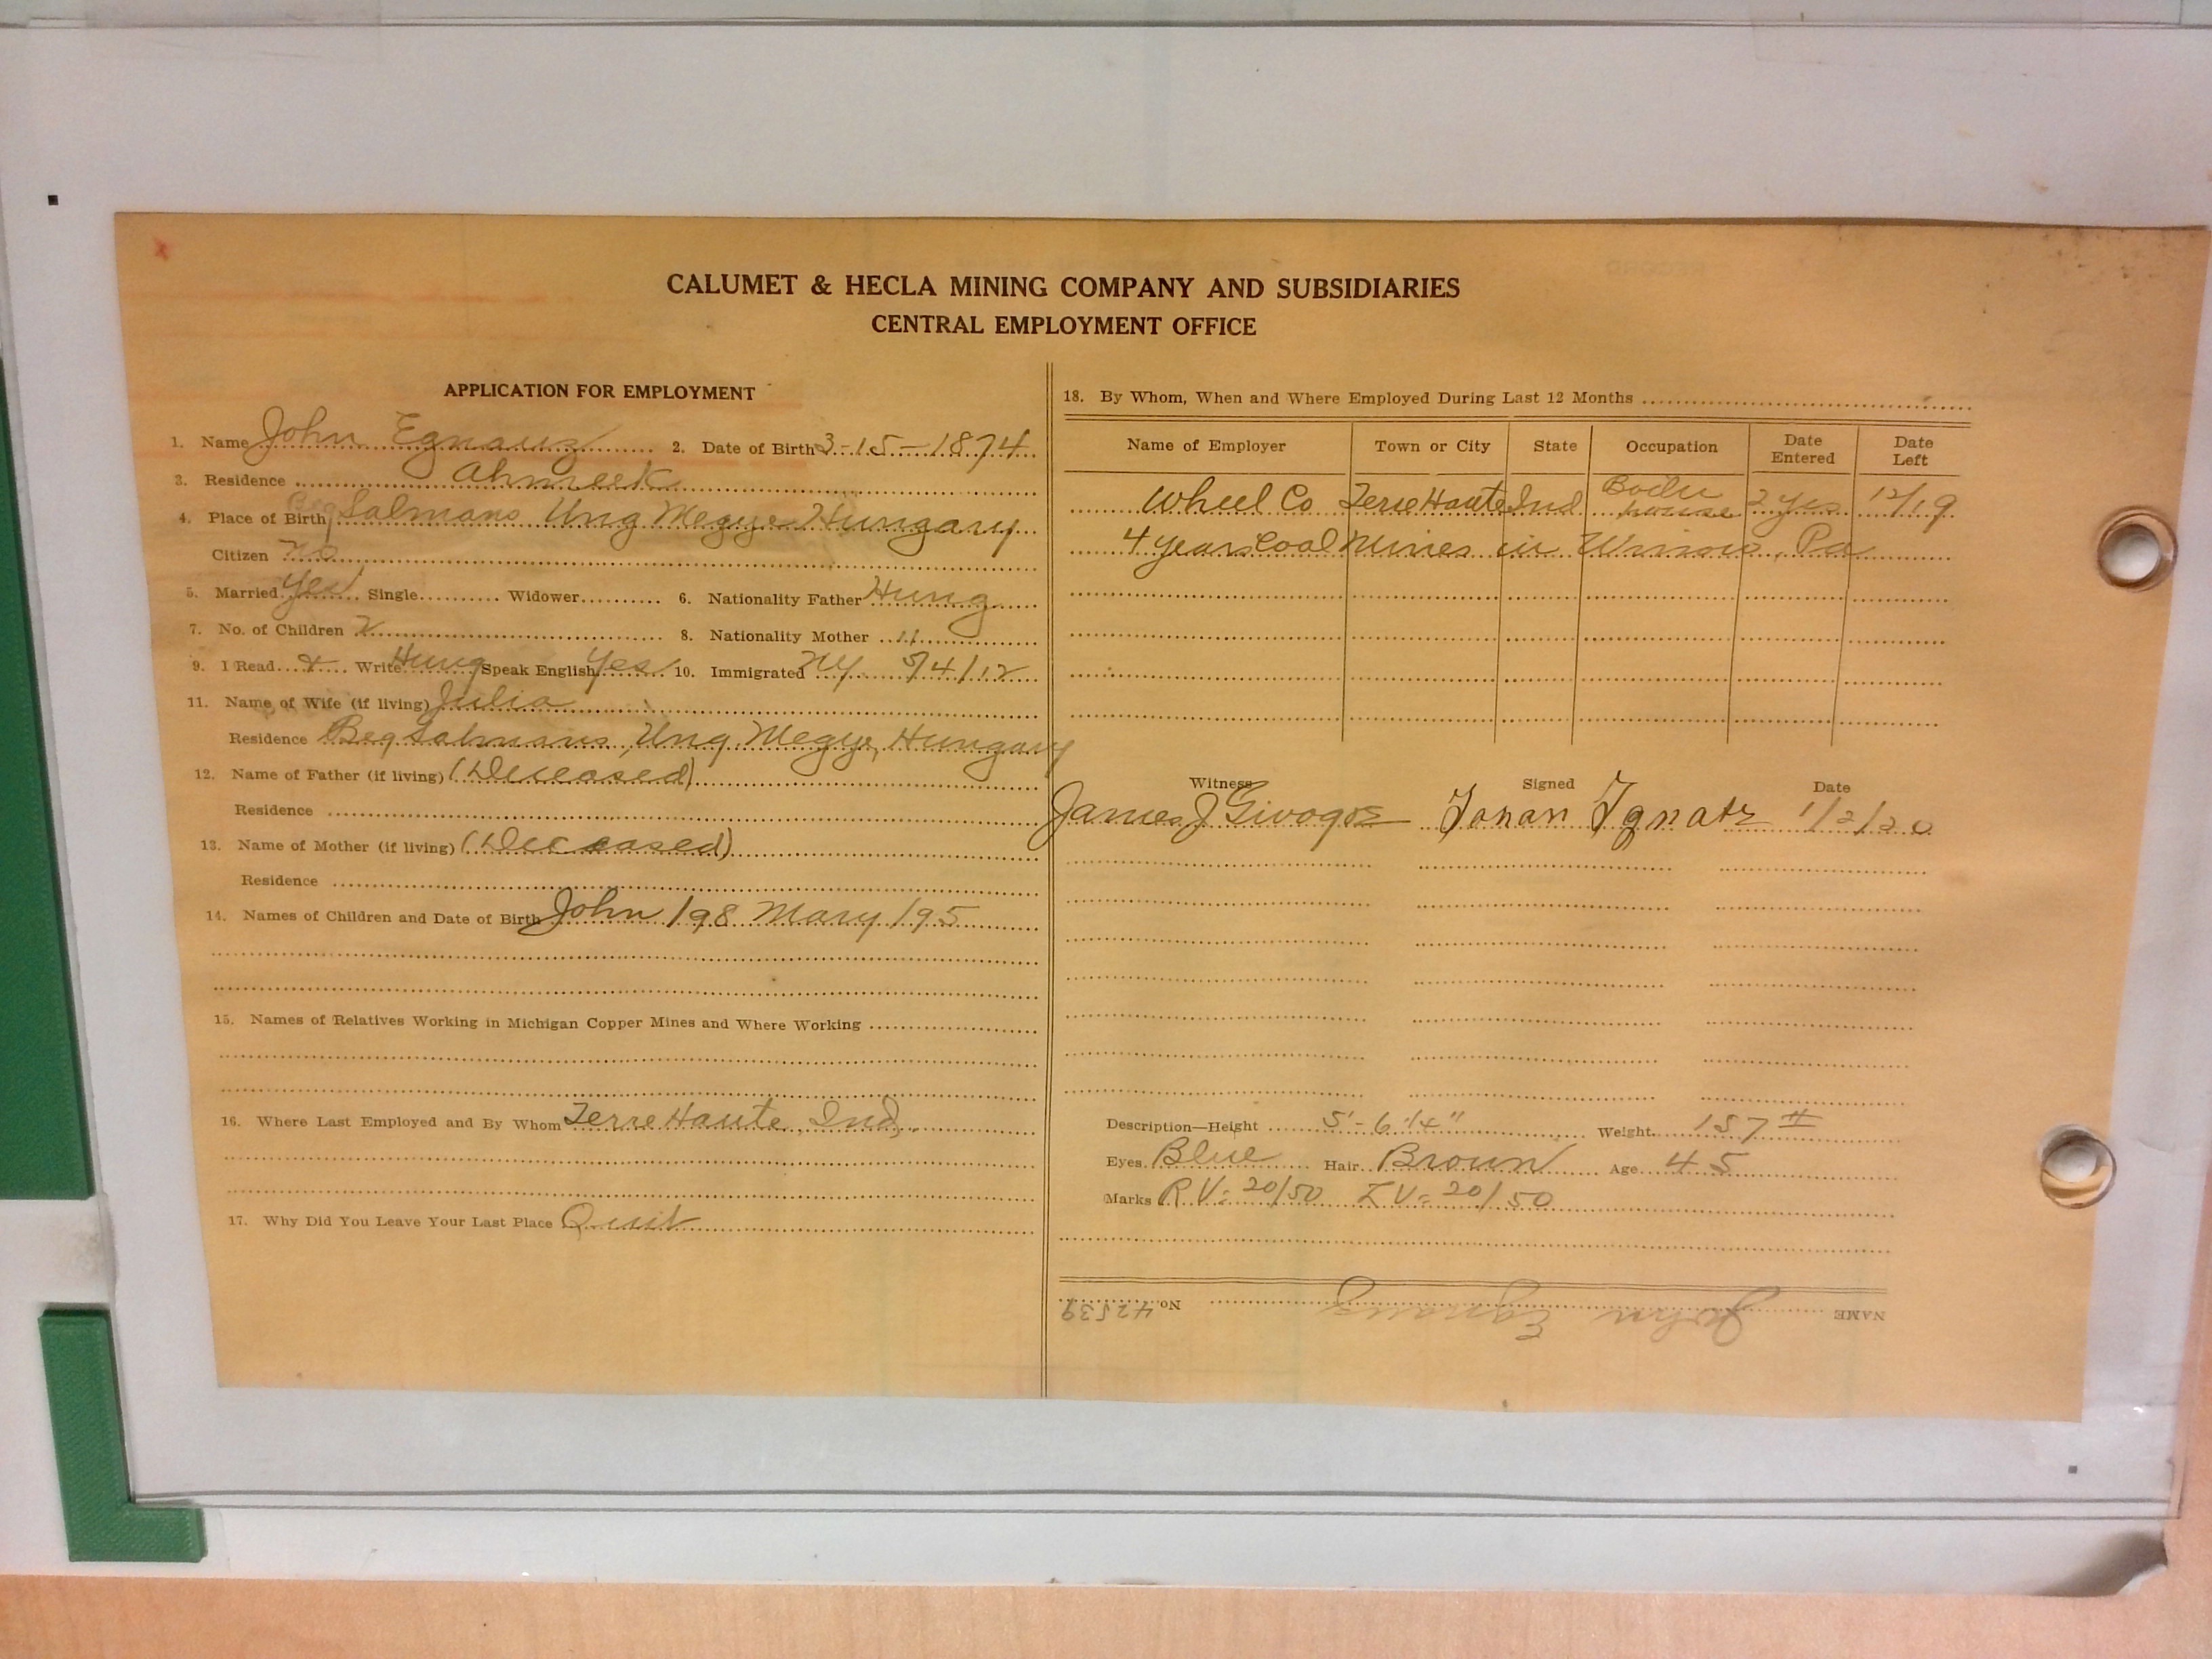 CALUMET & HECLA MINING COMPANY AND SUBSIDIARIES
CENTRAL EMPLOYMENT OFFICE
APPLICATION FOR EMPLOYMENT
1. Name John Egnauz 2. Date of Birth 3-15-1874
3. Residence Ahmeek
4. Place of Birth Beg Salmans Ung Megye Hungary
Citizen No
5. Married Yes Single Widower 6. Nationality Father Hung
7. No. of Children 2 8. Nationality Mother "
9. I Read & Write Hung Speak English Yes 10. Immigrated NY 5/4/12
11. Name of Wife (if living) Julia
Residence Beg Salmans, Ung Megye, Hungary
12. Name of Father (if living) (Deceased)
Residence
13. Name of Mother (if living) (Deceased)
Residence
14. Names of Children and Date of Birth John 198 Mary 195
15. Names of Relatives Working in Michigan Copper Mines and Where Working
16. Where Last Employed and By Whom Terre Haute, Ind,
17. Why Did You Leave Your Last Place Quit
18. By Whom, When and Where Employed During Last 12 Months
Name of Employer Town or City State Occupation Date Entered Date Left
Wheel Co Terre Haute Ind Boiler house 2 yrs 12/19
4 years Coal Mines in Pa
Witness Signed Date
James J Ignatz 1/2/20
Description—Height 5'-6 1/4" Weight 157 #
Eyes Blue Hair Brown Age 45
Marks R.V= 20/50 L V= 20/50
NAME John Egnauz No. 42539